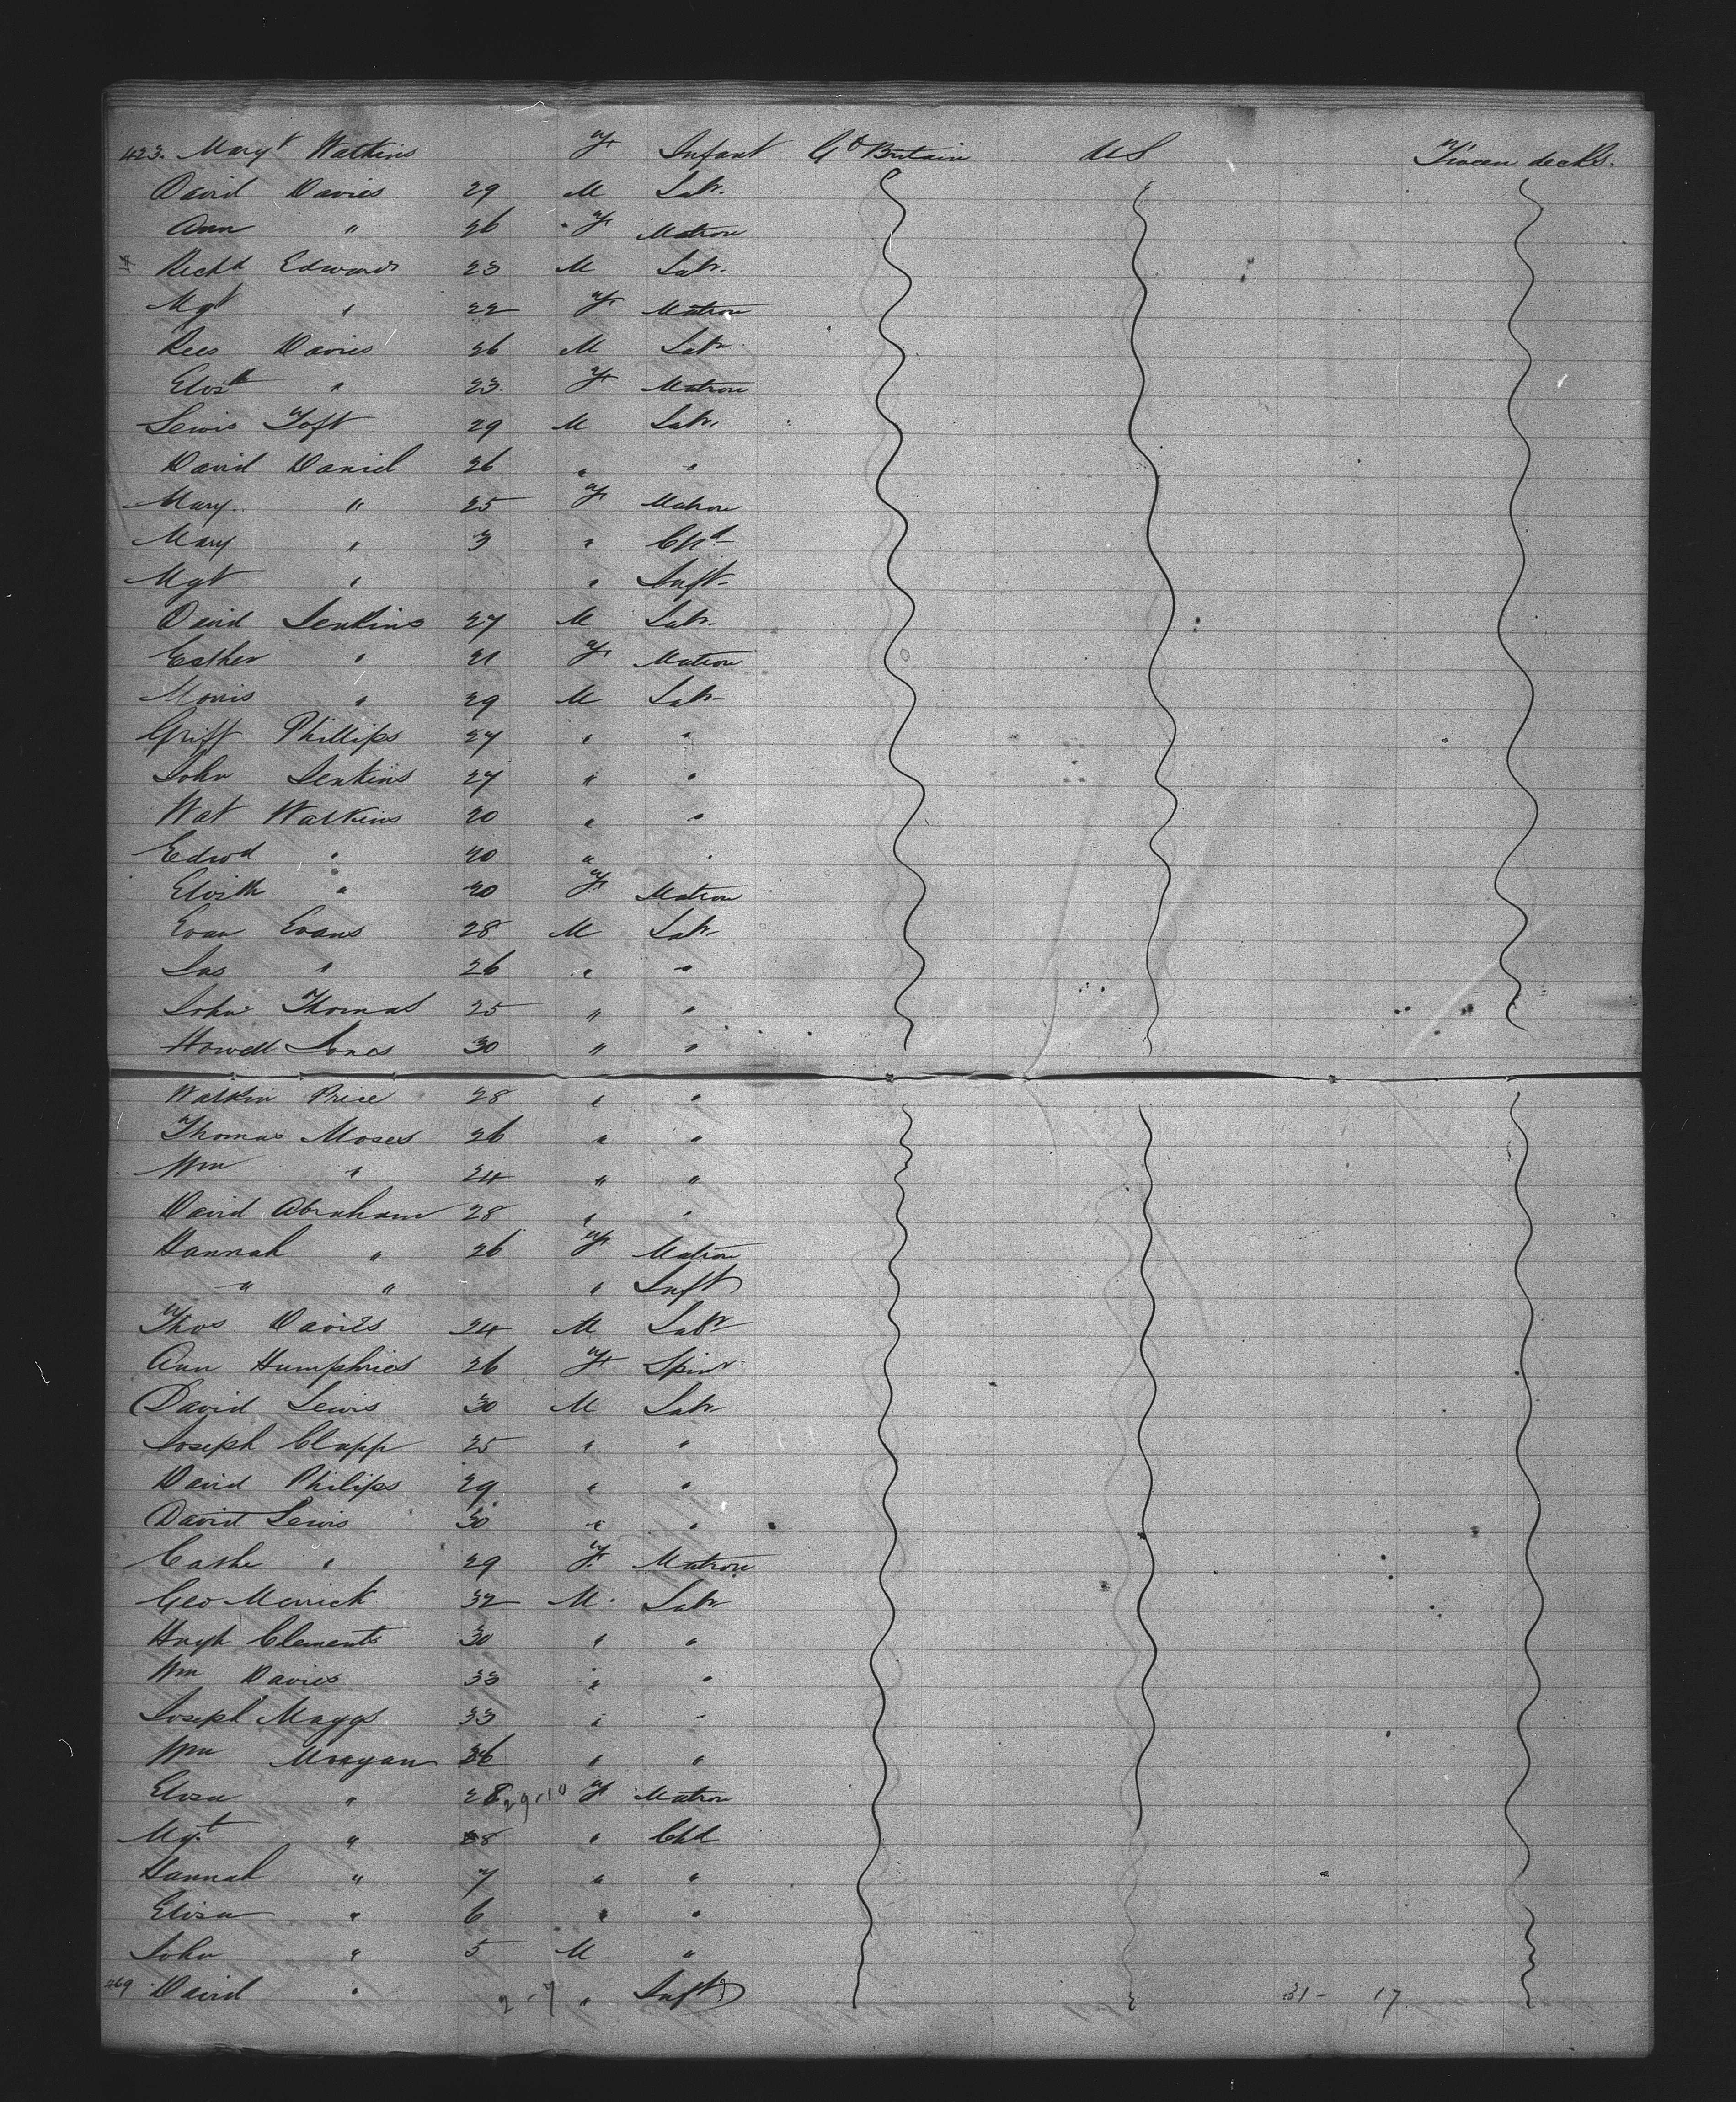 423. Margt Watkins F Infant Gt Britain US Tween decks.
David Davies 29 M Labr.
Ann " 26 " F Matron
Richd Edwards 23 M Labr.
Mgt " 22 F Matron
Rees Davies 26 M Labr
Elizth " 23 F Matron
Lewis Toft 29 M Labr.
David Daniel 26 " "
Mary " 25 F Matron
Mary " 3 " Chd
Mgt " " Inft
David Jenkins 27 M Labr.
Esther " 21 F Matron
Morris " 29 M Labr
Griff Phillips 27 " "
John Jenkins 27 " "
Wat Watkins 20 " "
Edwd " 20 " "
Elizth " 20 F Matron
Evan Evans 28 M Labr
Jas " 26 " "
John Thomas 25 " "
Howell Jones 30 " "
Watkin Price 28 " "
Thomas Moses 26 " "
Wm " 24 " "
David Abraham 28 " "
Hannah " 26 F Matron
" " " Inft
Thos Davies 24 M Labr
Ann Humphries 26 F Spinr
David Lewis 30 M Labr
Joseph Clapp 25 " "
David Philips 29 " "
David Lewis 30 " "
Cathe " 29 F Matron
Geo Merrick 32 M. Labr
Hugh Clements 30 " "
Wm Davies 33 " "
Joseph Maggs 33 " "
Wm Morgan 36 " "
Eliza " 28 29.10 F Matron
Mgt " 8 " Chd
Hannah " 7 " "
Eliza " 6 " "
John " 5 M "
469 David " 2.7 " Inft 31- 17